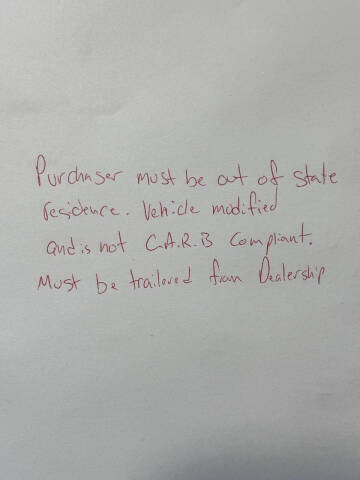 Purchaser must be out of state
residence. Vehicle modified
and is not C.A.R.B Compliant.
Must be trailored from Dealership